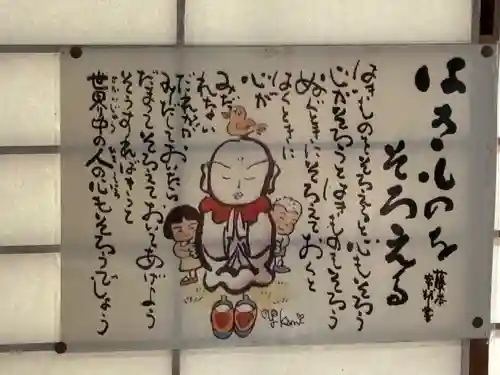 はきものをそろえる
藤本幸邦 書
はきものをそろえると心もそろう
心がそろうとはきものもそろう
ぬぐときにそろえておくと
はくときに
心が
みだれない
だれかが
みだしておいたら
だまってそろえておいてあげよう
そうすればきっと
世界中の人の心もそろうでしょう